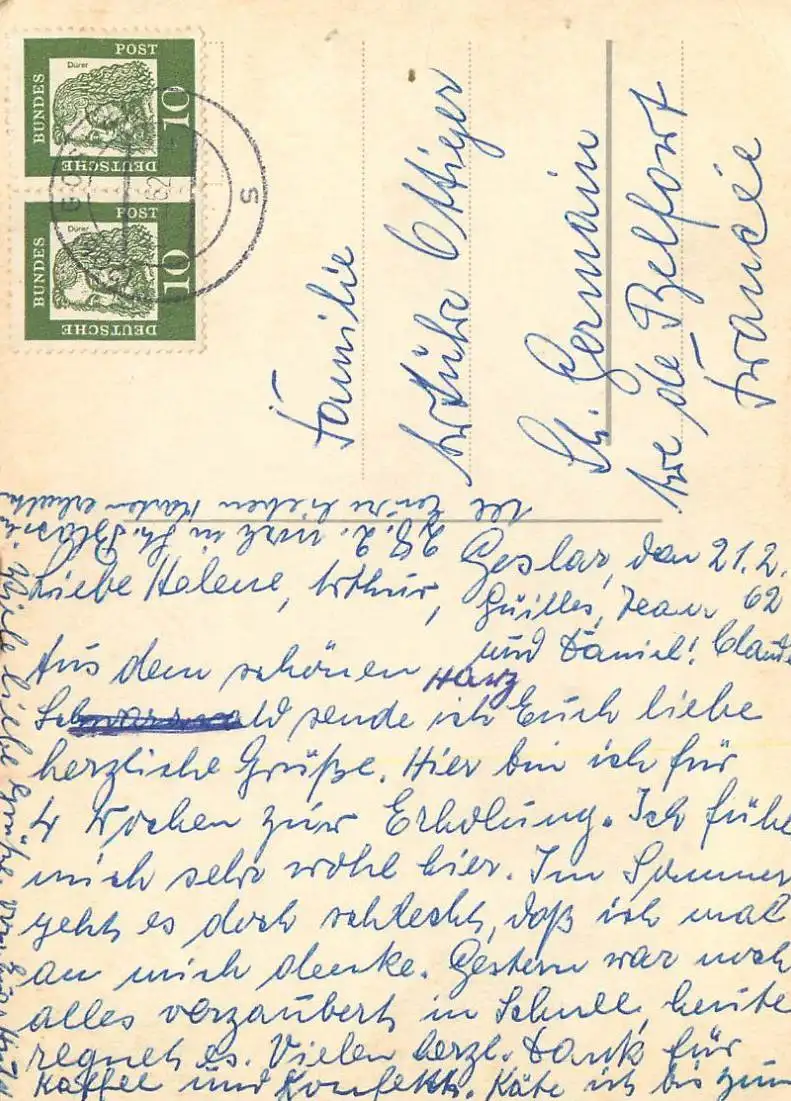 DEUTSCHE
BUNDES
POST
Dürer
10
DEUTSCHE
BUNDES
POST
Dürer
10
s
Familie
Arthur Ottiger
St. Germain
de Belfort
France
Goslar, den 21.2.
62
Liebe Helene, Arthur, Guilles, Jean
Claude
und Daniel!
Aus dem schönen
Harz
Schwarzwald sende ich Euch liebe
herzliche Grüße. Hier bin ich für
4 Wochen zur Erholung. Ich fühle
mich sehr wohl hier. Im Sommer
geht es doch schlecht, daß ich mal
an mich denke. Gestern war noch
alles verzaubert in Schnee, heute
regnet es. Vielen herzl. Dank für
Kaffee und Konfekt. Käte ich bis zum
28.2. in St.
lieben Karten erhalten
Viele liebe Grüße